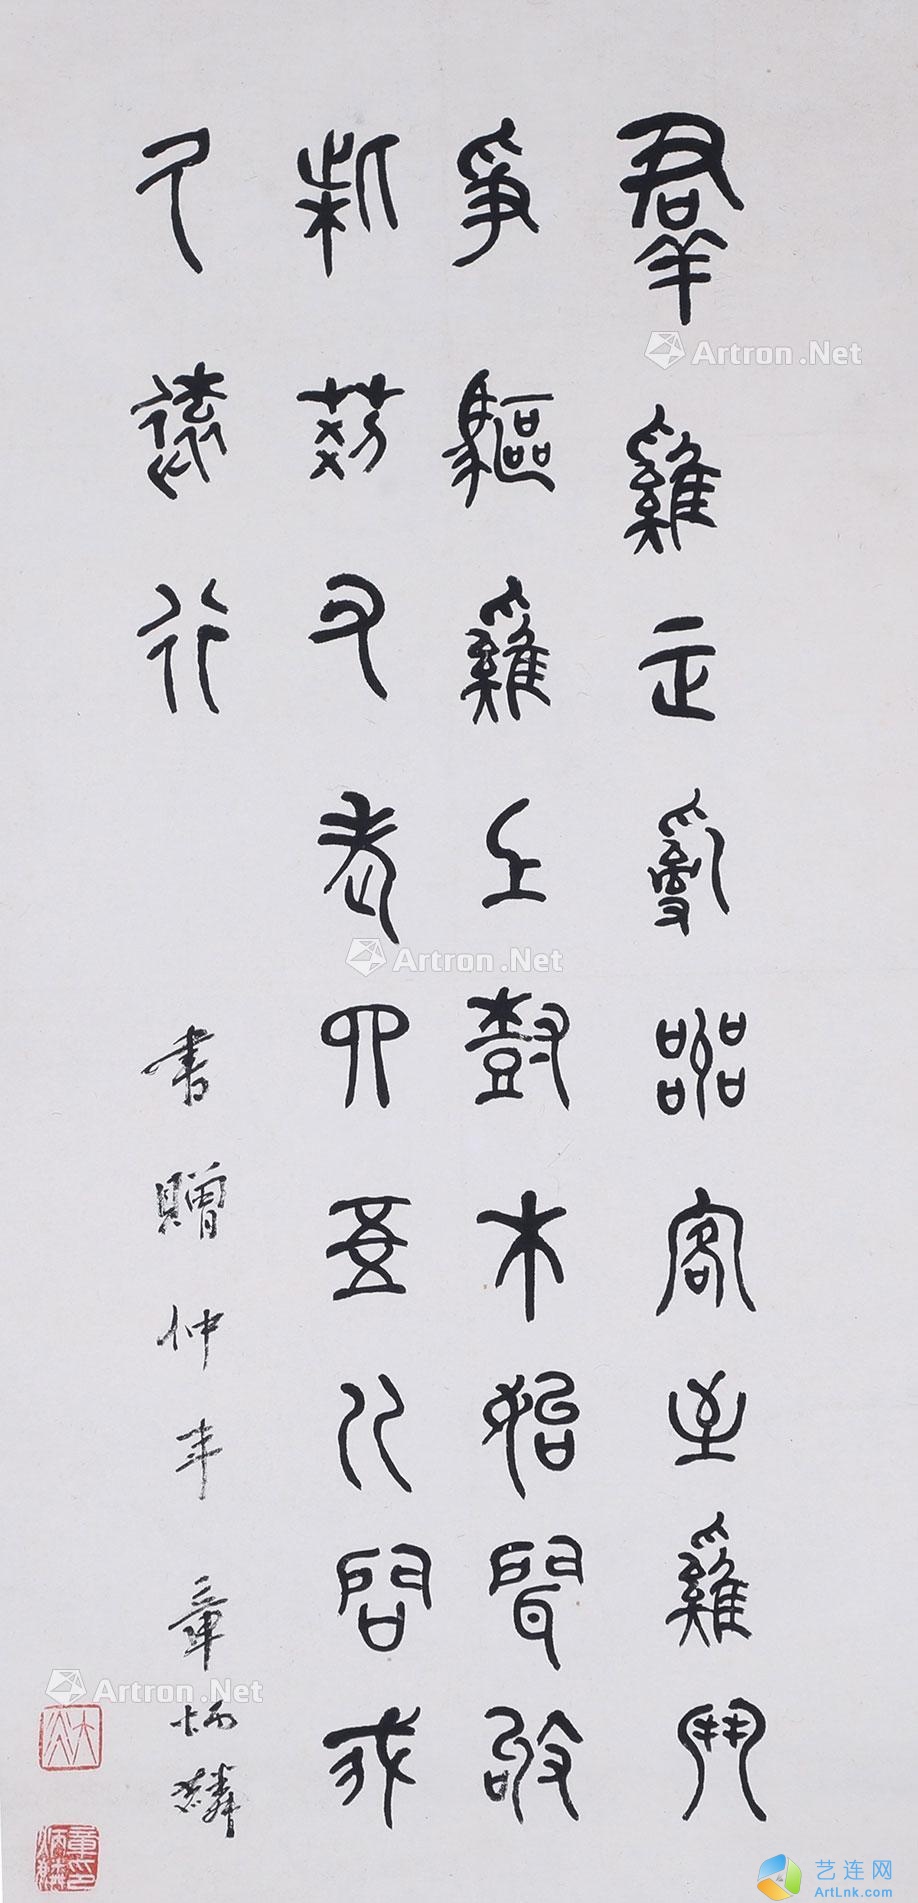 羣雞正亂噭客至雞鬥
爭驅雞上樹木始聞敂
柴荊父老四五人問我
久遠行
書贈仲年 章炳麟
大炎
章炳麟印
Artron.Net
Artron.Net
Artron.Net
艺连网
ArtLnk.com